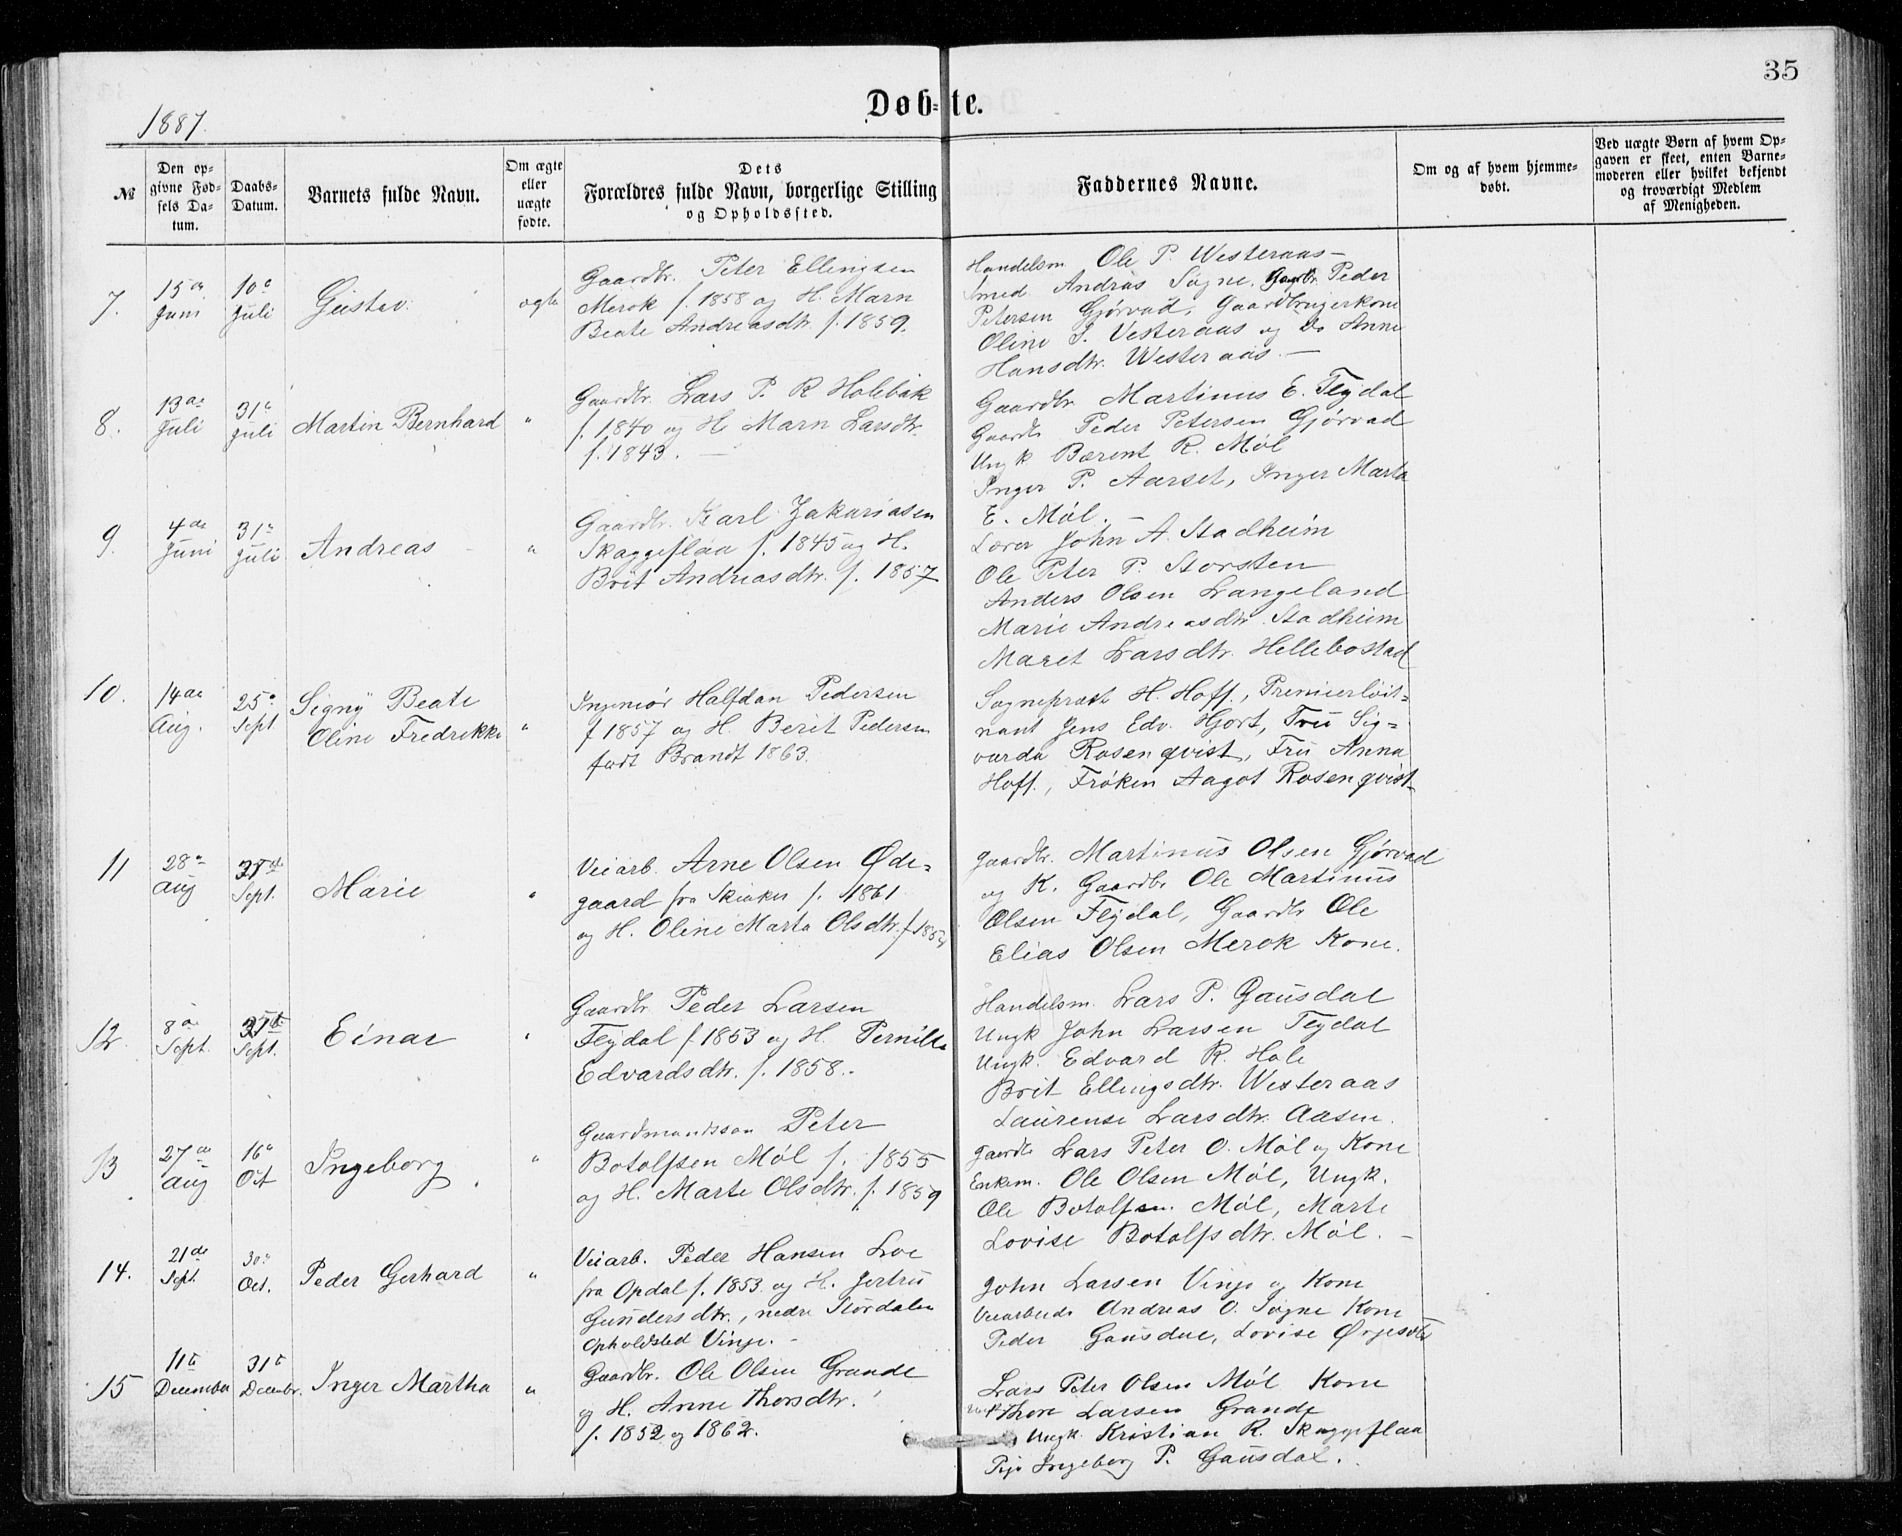 35
Døbte.
1887.
№
Den op-
givne Fød-
sels Da-
tum.
Daabs-
Datum.
Barnets fulde Navn.
Om ægte
eller
uægte
fødte.
Dets
Forældres fulde Navn, borgerlige Stilling
og Opholdssted.
Faddernes Navne.
Om og af hvem hjemme-
døbt.
Ved uægte Børn af hvem Op-
gaven er skeet, enten Barne-
moderen eller hvilket bekjendt
og troværdigt Medlem
af Menigheden.
7.
15de
Juni
10e
Juli
Gustav.
ægte
Gaardbr. Peter Ellingsen
Merok f. 1858 og H. Marn
Beate Andreasdtr. f. 1859.
Handelsm Ole P. Westeraas -
Smed Andras Sogne, Gaardbr. Peder
Petersen Gjørvad, Gaardbrugerkone
Oline P. Vesteraas og do Anne
Hansdtr. Westeraas. -
8.
13de
Juli
31e
Juli
Martin Bernhard
"
Gaardbr. Lars P. R Holebak
f. 1840 og H. Marn Larsdtr.
f. 1843. -
Gaardbr Martinus E. Flydal
Gaardb Peder Petersen Gjørvad
Ungk Bærent R. Møl
Inger P. Aarset, Inger Marta
E. Møl. -
9.
4de
Juni
31e
Juli
Andreas -
"
Gaardbr. Karl Zakariasen
Skaggeflaa f. 1845 og H.
Brit Andreasdtr. f. 1857
Lærer John A. Stadheim
Ole Peter P. Storsten
Anders Olsen Langeland
Marie Andreasdtr Stadheim
Maret Larsdtr. Hellebostad
10.
14de
Aug.
25e
Sept
Signy Beate
Oline Fredrikke
"
Ingeniør Halfdan Pedersen
f 1857 og H. Berit Pedersen
født Brandt 1863.
Sognepræst H. Hoff., Premierløit-
nant Jens Edv. Hjort, Fru Sig-
varda Rosenqvist, Fru Anna
Hoff., Frøken Aagot Rosenqvist
11
28e
Aug
Sept.
Marie
"
Veiarb. Arne Olsen Øde-
gaard fra Skiaker f. 1861
og H. Oline Marta Olsdtr. f 1854
Gaardbr. Martinus Olsen Gjørvad
og K. Gaardbr Ole Martinus
Olsen Flydal, Gaardbr Ole
Elias Olsen Merok Kone.
12.
8e
Sept.
Sept.
Einar
"
Gaardbr Peder Larsen
Flydal f 1853 og H. Pernille
Edvardsdtr. f. 1858.
Handelsm. Lars P. Gausdal
Ungk John Larsen Flydal
Ungk. Edvard R. Hole
Brit Ellingsdtr. Westeraas
Laurense Larsdtr. Aasen.
13
27de
Aug
16e
Oct
Ingeborg.
"
Gaardmandsson Peter
Botolfsen Møl f. 1855
og H. Marte Olsdtr. f. 1859
Gaardb Lars Peter O. Møl og Kone
Enkem. Ole Olsen Møl, Ungk.
Ole Botolfsen Møl, Marte
Lovise Botolfsdtr. Møl. -
14.
21de
Sept.
30e
Oct.
Peder Gerhard
"
Veiarb. Peder Hansen Loe
fra Opdal f. 1853 og H. Jertru
Gundersdtr., nedre Stördalen
Opholdsted Vinje. -
John Larsen Vinje og Kone
Veiarbeide Andreas O. Sogne Kone
Peder Gausdal, Lovise
15
11te
December
31te
Decembr.
Inger Martha
"
Gaardbr. Ole Olsen Grande
og H. Anne Thorsdtr.
f. 1852 og 1862.
Lars Peter Olsen Møl Kone
Thore Larsen Grande
Ungk. Kristian R. Skaggeflaa
Pige Ingeborg P. Gausdal.